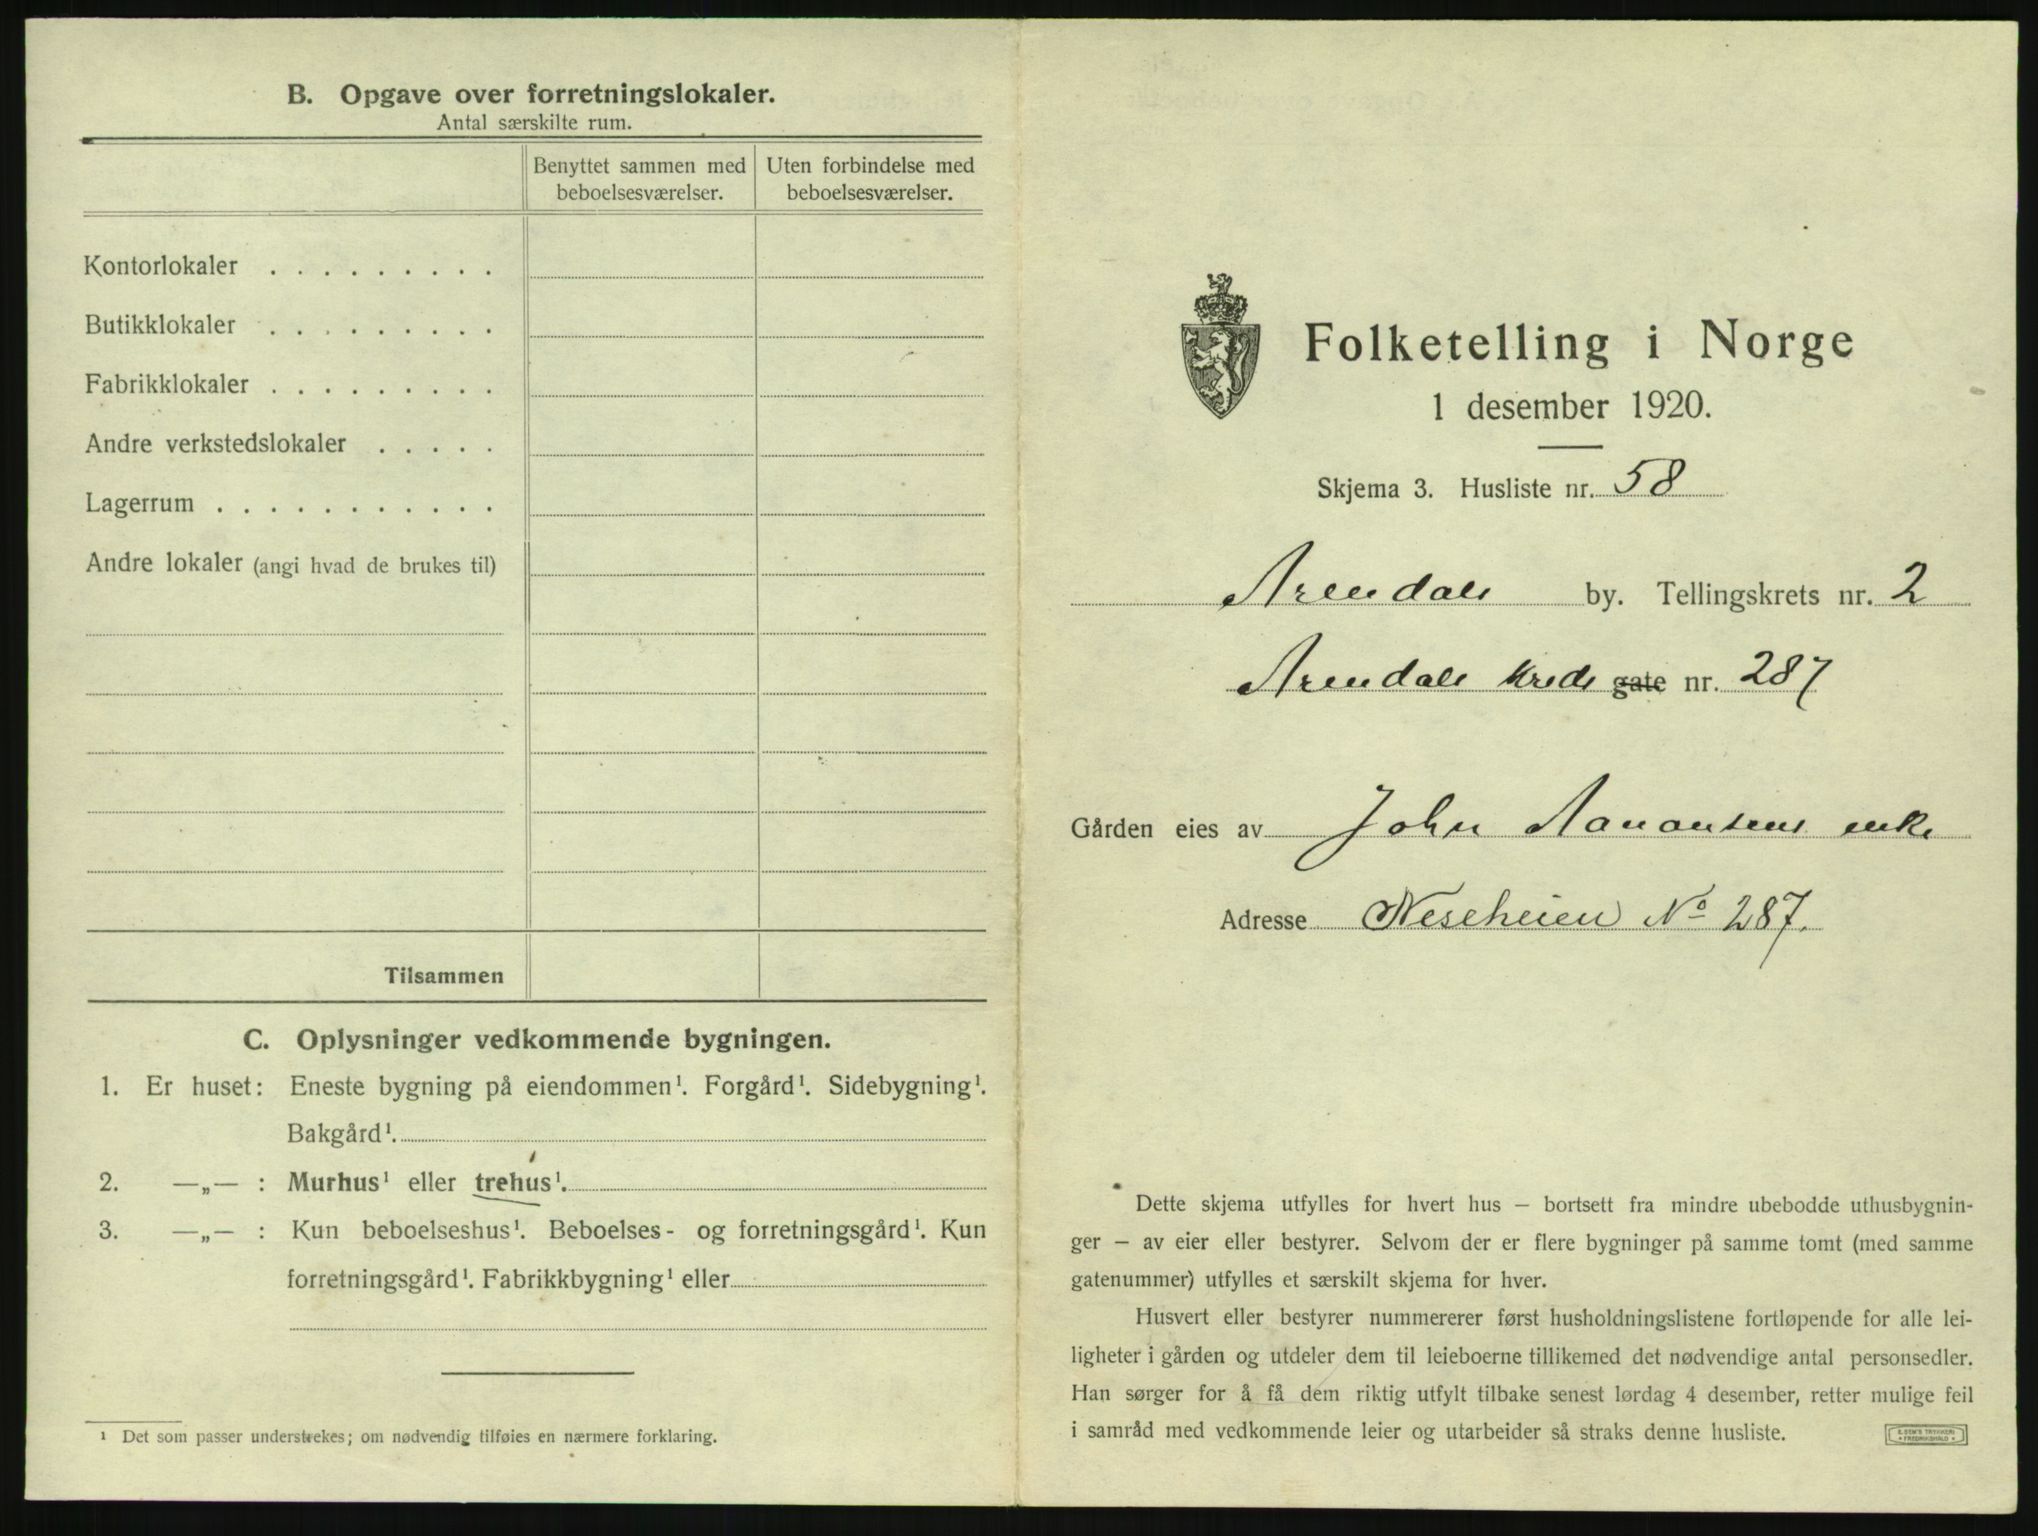 B. Opgave over forretningslokaler.
Antal særskilte rum.
Benyttet sammen med beboelsesværelser.
Uten forbindelse med beboelsesværelser.
Kontorlokaler . . . . . . . . .
Butikklokaler . . . . . . . . .
Fabrikklokaler . . . . . . . . .
Andre verkstedslokaler . . . . .
Lagerrum . . . . . . . . . . .
Andre lokaler (angi hvad de brukes til)
Tilsammen
C. Oplysninger vedkommende bygningen.
1. Er huset: Eneste bygning på eiendommen¹. Forgård¹. Sidebygning¹.
Bakgård¹.
2. —„— : Murhus¹ eller trehus¹.
3. —„— : Kun beboelseshus¹. Beboelses- og forretningsgård¹. Kun
forretningsgård¹. Fabrikkbygning¹ eller
¹ Det som passer understrekes; om nødvendig tilføies en nærmere forklaring.
Folketelling i Norge
1 desember 1920.
Skjema 3. Husliste nr. 58
Arendals by. Tellingskrets nr. 2
Arendals kreds gate nr. 287
Gården eies av John Aanonsens enke
Adresse Neseheien No 287.
Dette skjema utfylles for hvert hus — bortsett fra mindre ubebodde uthusbygnin-
ger — av eier eller bestyrer. Selvom der er flere bygninger på samme tomt (med samme
gatenummer) utfylles et særskilt skjema for hver.
Husvert eller bestyrer nummererer først husholdningslistene fortløpende for alle lei-
ligheter i gården og utdeler dem til leieboerne tillikemed det nødvendige antal personsedler.
Han sørger for å få dem riktig utfylt tilbake senest lørdag 4 desember, retter mulige feil
i samråd med vedkommende leier og utarbeider så straks denne husliste.